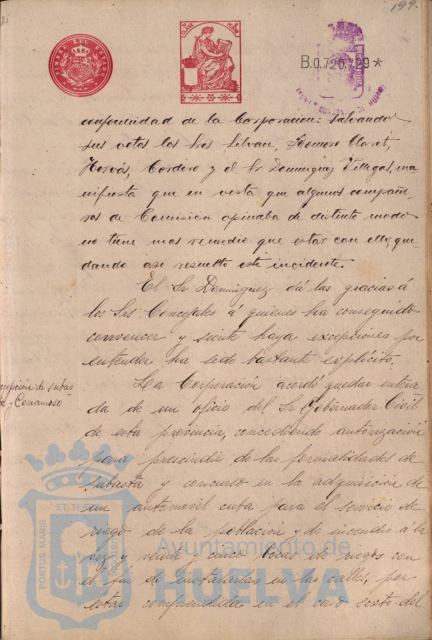 199.
B.0.720.799*
conformidad de la Corporacion: salvando
sus votos los Sres Silván, Romero Claret,
Hervás, Cordero y el Sr Dominguez Villegas, ma
nifiesta que en vista que algunos compañe
ros de Comision opinaba de distinto modo
no tiene mas remedio que estar con ellos, que
dando asi resuelto este incidente.
El Sr Dominguez dá las gracias á
los Sres Concejales á quienes ha conseguido
convencer y siente haya excepciones por
entender ha sido bastante explícito.
La Corporacion acordó quedar entera
da de un oficio del Sr Gobernador Civil
de esta provincia, concediendo autorizacion
para prescindir de las formalidades de
subasta y concurso en la adquisicion de
un automovil cuba para el servicio de
riego de la poblacion y de incendio á la
vez y veinte y cinco bocas de riegos con
el fin de instalarlas en las calles, por
estar comprendida en el caso sexto del
cepcion de subas
y Concurso
Ayuntamiento de
HUELVA
PORTUS MARIS